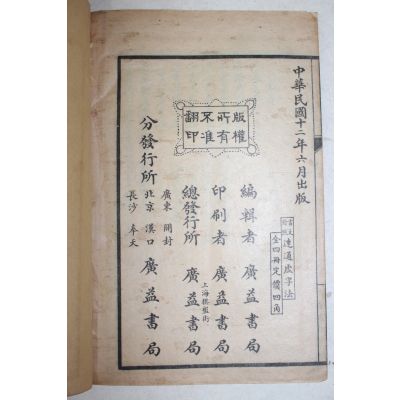 中華民國十二年六月出版
速通虛字法
全四冊定價四角
版權所有不准翻印
編輯者 廣益書局
印刷者 廣益書局
上海棋盤街
總發行所 廣益書局
分發行所
廣東 開封
北京 漢口
長沙 奉天
廣益書局